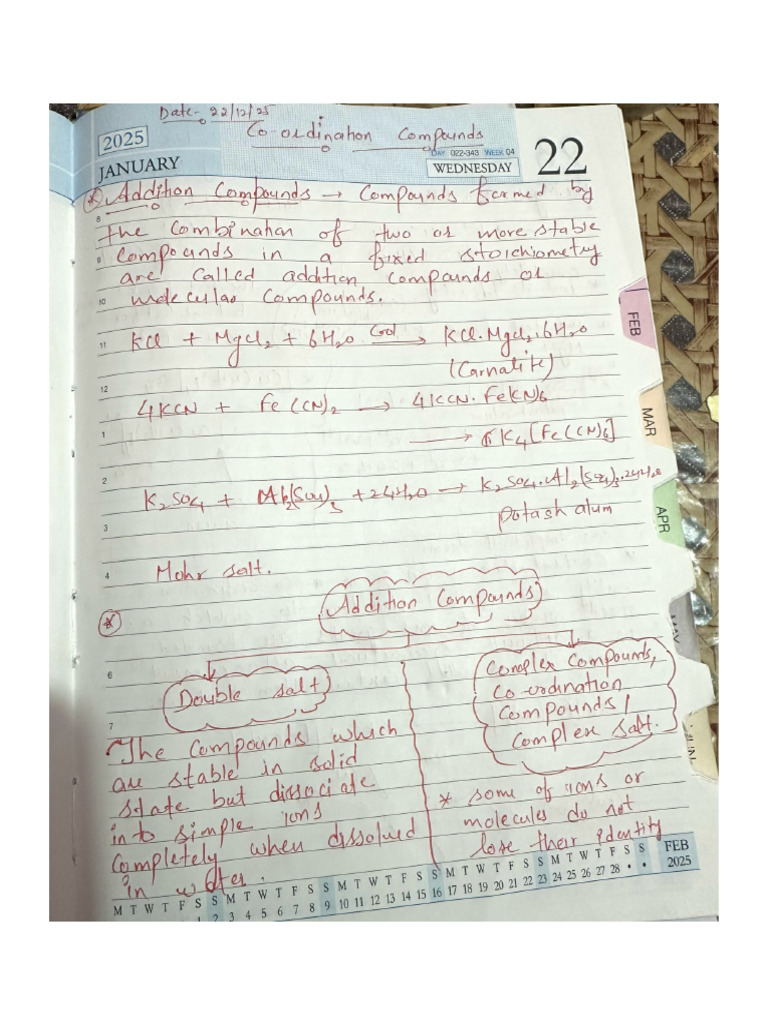 Date- 22/12/25
2025
Co-ordination Compounds
JANUARY
DAY 022-343 WEEK 04
WEDNESDAY
22
* Addition Compounds → Compounds formed by
8
the combination of two or more stable
9 compounds in a fixed stoichiometry
are called addition compounds or
10 molecular compounds.
11 KCl + MgCl2 + 6H2O Cool → KCl.MgCl2.6H2O
(Carnalite)
12
4KCN + Fe(CN)2 → 4KCN.Fe(CN)6
1
→ K4[Fe(CN)6]
2
K2SO4 + Al2(SO4)3 + 24H2O → K2SO4.Al2(SO4)3.24H2O
3
Potash alum
4 Mohr salt.
Addition Compounds
*
6
Double salt
Complex Compounds,
Co-ordination
Compounds/
Complex salt.
7
The compounds which
are stable in solid
state but dissociate
into simple ions
completely when dissolved
in water.
* some of ions or
molecules do not
lose their identity
M T W T F S S M T W T F S S M T W T F S S M T W T F S S M T W T F S S
1 2 3 4 5 6 7 8 9 10 11 12 13 14 15 16 17 18 19 20 21 22 23 24 25 26 27 28 • •
FEB
2025
FEB
MAR
APR
MAY